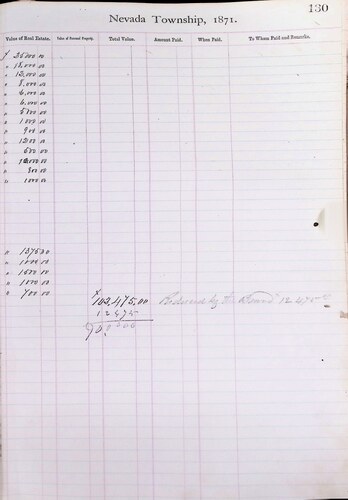 130
Nevada Township, 1871.
Value of Real Estate. Value of Personal Property. Total Value. Amount Paid. When Paid. To Whom Paid and Remarks.
" 15,000 00
" 12,000 00
" 8,000 00
" 6,000 00
" 6,000 00
" 5000 00
" 1000 00
" 900 00
" 1200 00
" 600 00
" 300 00
" 1000 00
" 1375 00
" 1000 00
" 1600 00
" 1000 00
" 700 00
$ 103,475.00 Reduced by the Board 12 475
12 475